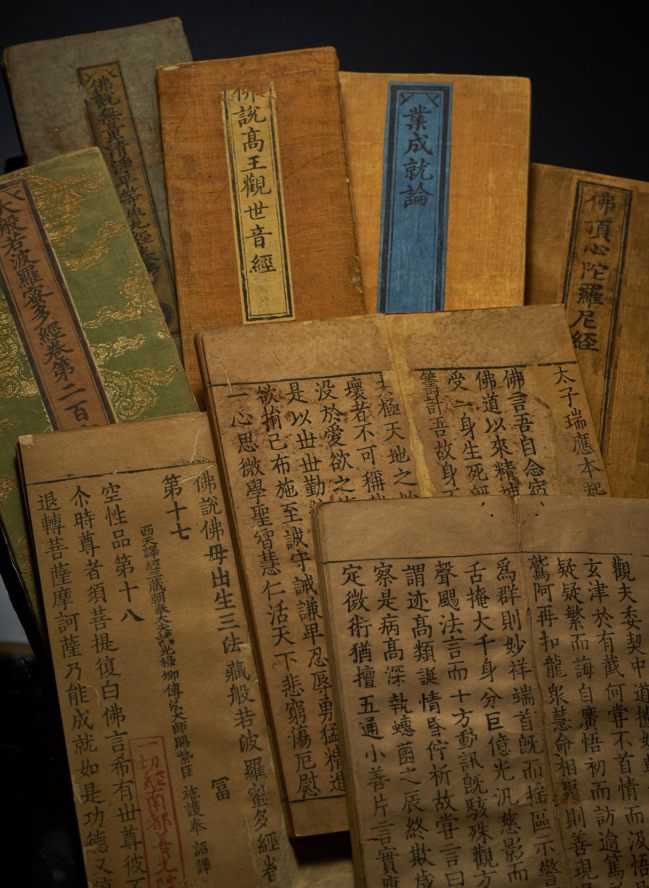 佛說無量清淨平等覺經
說高王觀世音經
業成就論
佛頂心陀羅尼經
大般若波羅蜜多經卷第二百
太子瑞應本
佛言吾自念宿
佛道以來精神
受一身生死
籌計吾故身
極天地之
壞者不可稱
没於愛欲之
是以丗丗勤
欲捐己布施至誠守誡謙卑忍辱勇猛精進
一心思微學聖智慧仁活天下悲窮傷厄慰
佛說佛母出生三法藏般若波羅蜜多經卷
第十七 冨
西天譯經三藏朝奉大夫試光祿卿傳法大師賜紫臣 施護奉 詔譯
空性品第十八
尒時尊者須菩提復白佛言希有丗尊彼不
退轉菩薩摩訶薩乃能成就如是功德又
一切經南都善光院
觀夫委契中道
玄津於有截何嘗不首情而汲悟
疑疑繁而誨自廣悟初而訪逾篤
鷲阿再扣龍衆慧命相聚則善現
爲群則妙祥端首旣而區示警
舌掩大千身分巨億光汎慈影而
聲颺法言而十方動訊旣駭殊觀方
謂迹高類誕情昏佇祈故甞一言曰
察是病高深執蟪菌之辰終欺歲
定微術猶擅五通小善片言實應